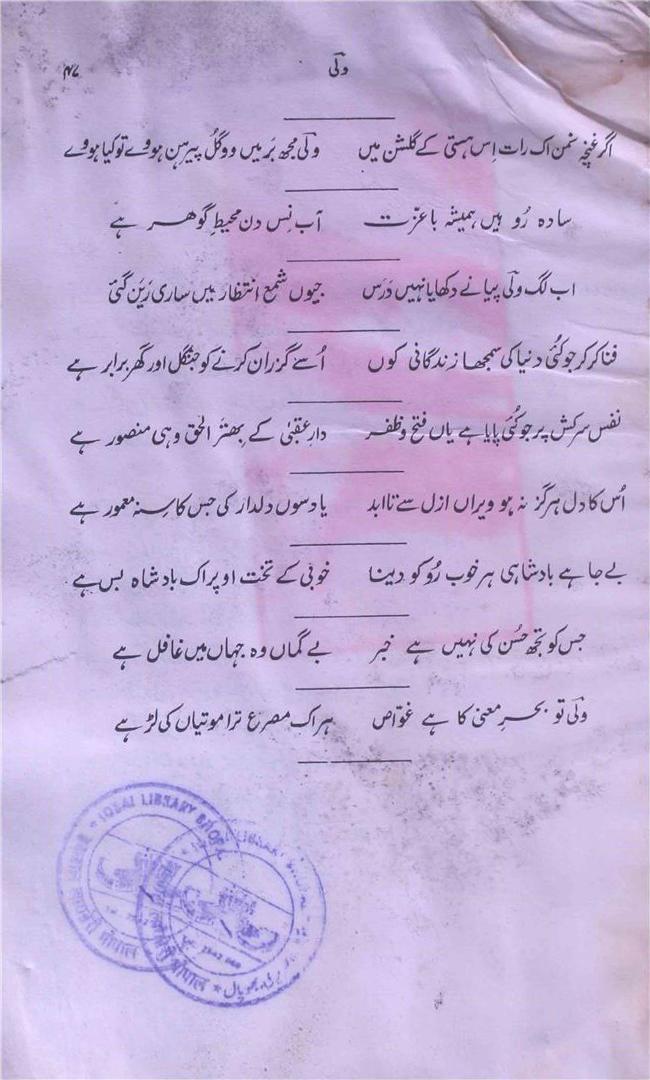 ولیؔ
۴۷
اگر غنچہ نمن اک رات اِس ہستی کے گلشن میں ولیؔ مجھ بَر میں وو گُل پیرہن ہووے تو کیا ہووے
سادہ رُو ہیں ہمیشہ باعزّت آب نِس دن محیطِ گوھر ہے
اب لگ ولیؔ پیا نے دکھایا نہیں دَرَس جیوں شمع انتظار میں ساری رَین گئی
فنا کر کر جو کُئی دنیا کی سمجھا زندگانی کوں اُسے گزران کرنے کو جنگل اور گھر برابر ہے
نفس سرکش پر جو کُئی پایا ہے یاں فتح و ظفر دارِ عقبیٰ کے بِھتر الحق وہی منصور ہے
اُس کا دل ہرگز نہ ہو ویراں ازل سے تا ابد یاد سوں دلدار کی جس کا سینہ معمور ہے
بے جا ہے بادشاہی ہر خوب رُو کو دینا خوبی کے تخت اوپر اک بادشاہ بس ہے
جس کو تجھ حُسن کی نہیں ہے خبر بے گماں وہ جہاں میں غافل ہے
ولیؔ تو بحرِ معنی کا ہے غوّاص ہر اک مصرع ترا موتیاں کی لڑ ہے
IQBAL LIBRARY BHOPAL
भोपाल
LIBRARY
भोपाल
بھوپال